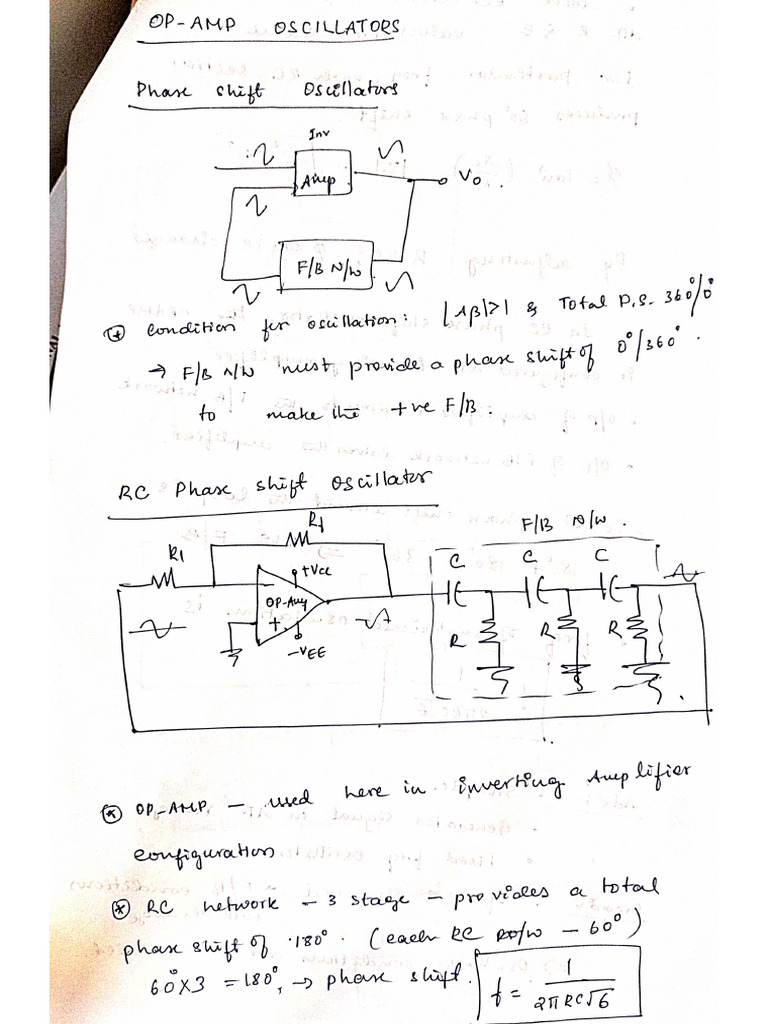 OP-AMP OSCILLATORS
Phase shift Oscillators
Inv
Amp
Vo
F/B N/W
condition for oscillation: |Aβ|>1 & Total P.S. 360°/0°
→ F/B N/W must provide a phase shift of 0°/360°.
to make the +ve F/B.
RC Phase shift Oscillator
Rf
F/B N/W.
R1
+Vcc
C C C
OP-Amp
-
+
-VEE
R R R
OP-AMP - used here in inverting Amplifier
configuration
RC network - 3 stage - provides a total
phase shift of 180°. (each RC N/W - 60°)
60°x3 = 180°, → phase shift.
f = 1 / 2πRC√6